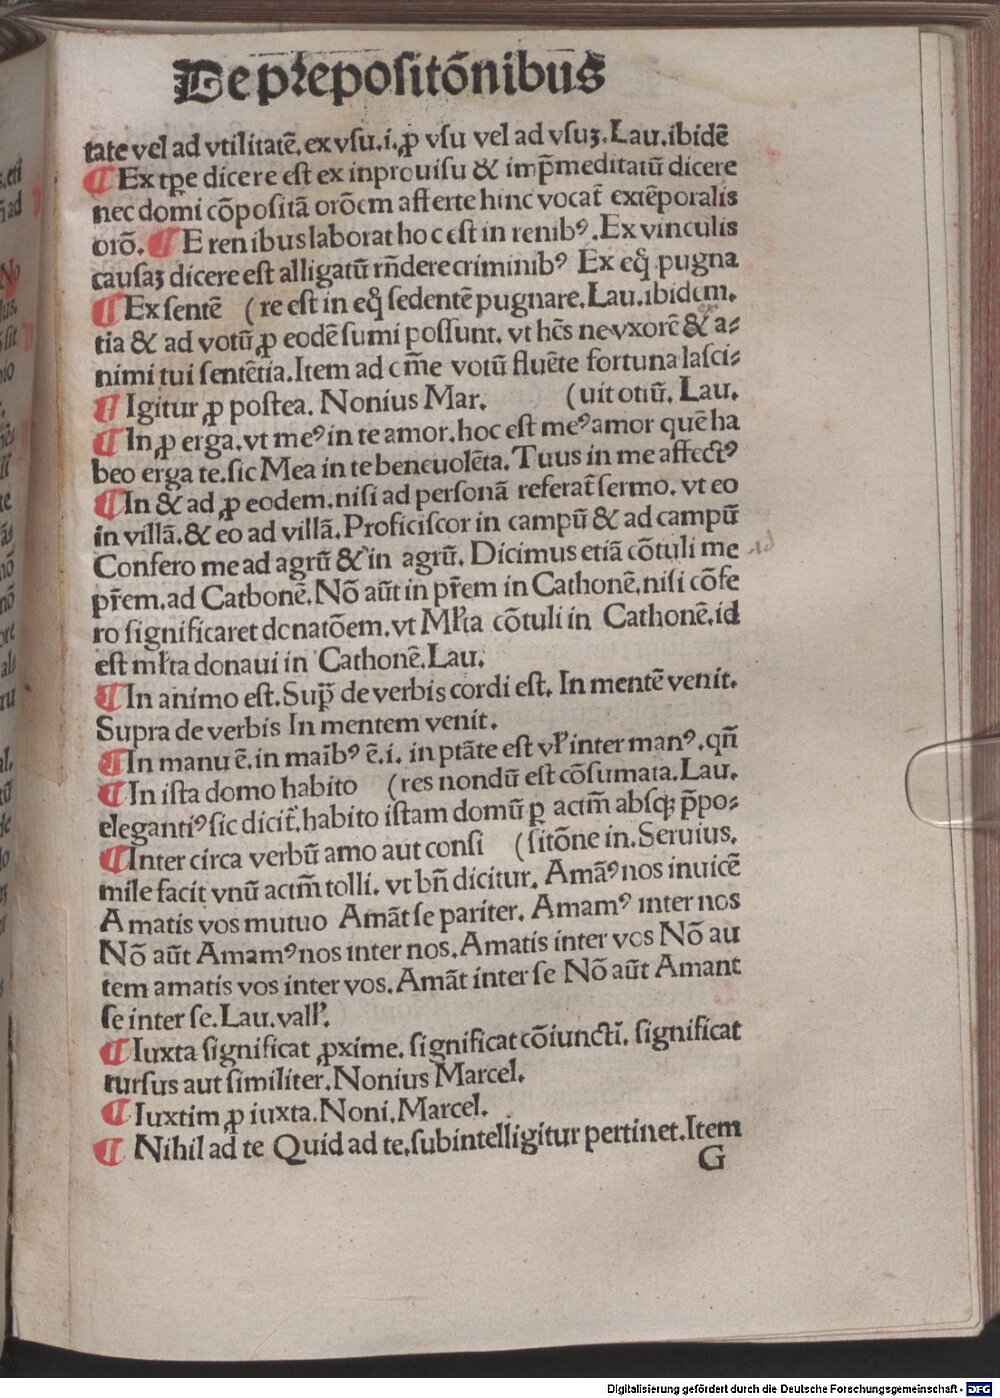 De prepositōnibus
tate vel ad vtilitatē. ex vsu .i. ꝓ vsu vel ad vsuꝫ. Lau. ibidē
¶ Ex tꝑe dicere est ex inprouisu & imp̄meditatū dicere
nec domi cōpositā orōem afferte hinc vocat̄ extēporalis
orō. ¶ E renibus laborat hoc est in renibꝰ. Ex vinculis
causaꝫ dicere est alligatū rn̄dere criminibꝰ Ex eq̄ pugna
¶ Ex sentē (re est in eq̄ sedentē pugnare. Lau. ibidem.
tia & ad votū ꝓ eodē sumi possunt. vt hēs ne vxorē & a⸗
nimi tui sentētia. Item ad cm̄e votū fluēte fortuna lasci⸗
¶ Igitur ꝓ postea. Nonius Mar. (uit otiū. Lau.
¶ In ꝓ erga. vt meꝰ in te amor. hoc est meꝰ amor quē ha
beo erga te. sic Mea in te beneuolēta. Tuus in me affectꝰ
¶ In & ad ꝓ eodem. nisi ad personā referat̄ sermo. vt eo
in villā. & eo ad villā. Proficiscor in campū & ad campū
Confero me ad agrū & in agrū. Dicimus etiā cōtuli me
pr̄em. ad Catbonē. Nō aūt in pr̄em in Cathonē. nisi cōfe
ro significaret donatōem. vt Młta cōtuli in Cathonē. id
est młta donaui in Cathonē. Lau.
¶ In animo est. Sup̄ de verbis cordi est. In mentē venit.
Supra de verbis In mentem venit.
¶ In manu ē. in maībꝰ ē .i. in ptāte est vł inter manꝰ. qn̄
¶ In ista domo habito (res nondū est cōsumata. Lau.
elegantiꝰ sic dicit̄. habito istam domū ꝑ actm̄ absqꝫ p̄po⸗
¶ Inter circa verbū amo aut consi (sitōne in. Seruius.
mile facit vnū actm̄ tolli. vt bn̄ dicitur. Amāꝰ nos inuicē
Amatis vos mutuo Amāt se pariter. Amamꝰ inter nos
Nō aūt Amamꝰ nos inter nos. Amatis inter vos Nō au
tem amatis vos inter vos. Amāt inter se Nō aūt Amant
se inter se. Lau. vałł.
¶ Iuxta significat ꝓxime. significat cōiuncti. significat
rursus aut similiter. Nonius Marcel.
¶ Iuxtim ꝓ iuxta. Noni. Marcel.
¶ Nihil ad te Quid ad te. subintelligitur pertinet. Item
G
Digitalisierung gefördert durch die Deutsche Forschungsgemeinschaft - DFG